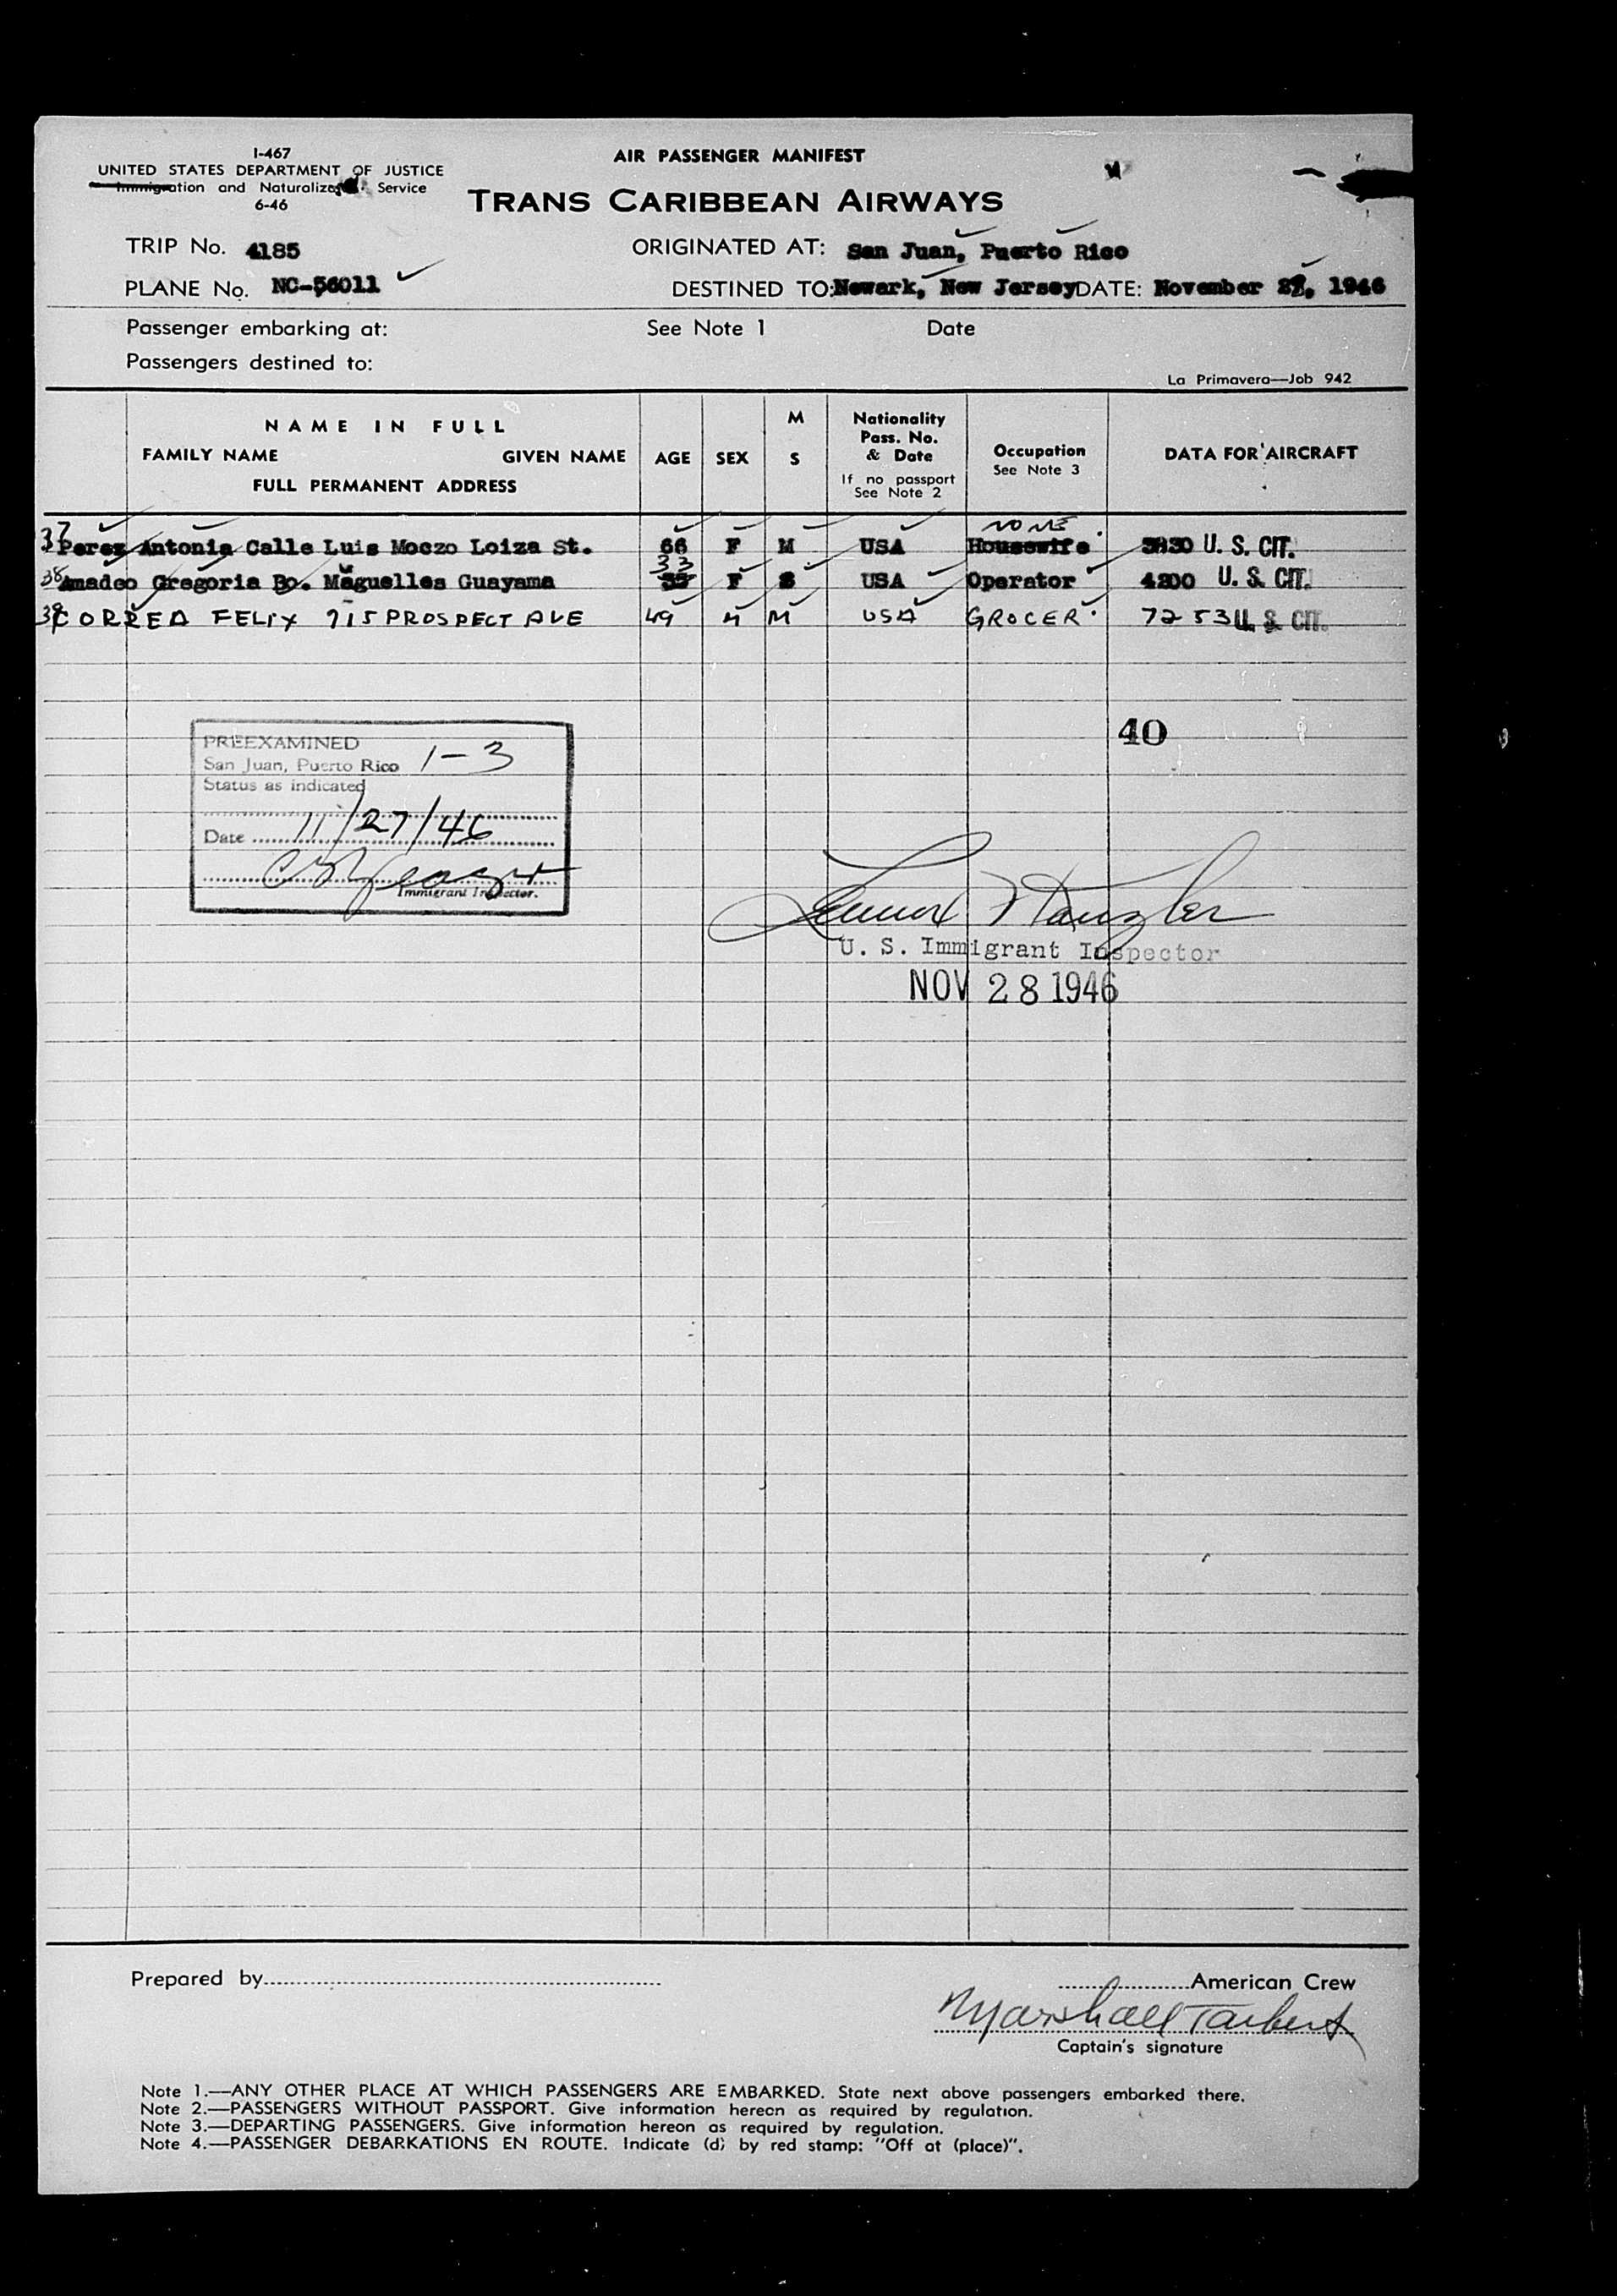 I-467
UNITED STATES DEPARTMENT OF JUSTICE
Immigration and Naturalize Service
6-46
AIR PASSENGER MANIFEST
TRANS CARIBBEAN AIRWAYS
TRIP No. 4185
ORIGINATED AT: San Juan, Puerto Rico
PLANE No. NC-56011
DESTINED TO: Newark, New Jersey DATE: November 28, 1946
Passenger embarking at: See Note 1 Date
Passengers destined to:
La Primavera—Job 942
NAME IN FULL
FAMILY NAME GIVEN NAME
FULL PERMANENT ADDRESS
AGE
SEX
M
S
Nationality
Pass. No.
& Date
If no passport
See Note 2
Occupation
See Note 3
DATA FOR AIRCRAFT
NONE
37 Perez Antonia Calle Luis Moczo Loiza St. 66 F M USA Housewife U. S. CIT.
33
38 Amadeo Gregoria Bo. Maguelles Guayama 35 F S USA Operator 4200 U. S. CIT.
39 CORREA FELIX 915 PROSPECT AVE 49 M M USA GROCER 7253 U. S. CIT.
40
PREEXAMINED
San Juan, Puerto Rico 1-3
Status as indicated
Date 11/27/46
Immigrant Inspector.
U. S. Immigrant Inspector
NOV 28 1946
Prepared by
American Crew
Marshall Tarbert
Captain's signature
Note 1.—ANY OTHER PLACE AT WHICH PASSENGERS ARE EMBARKED. State next above passengers embarked there.
Note 2.—PASSENGERS WITHOUT PASSPORT. Give information hereon as required by regulation.
Note 3.—DEPARTING PASSENGERS. Give information hereon as required by regulation.
Note 4.—PASSENGER DEBARKATIONS EN ROUTE. Indicate (d) by red stamp: "Off at (place)".